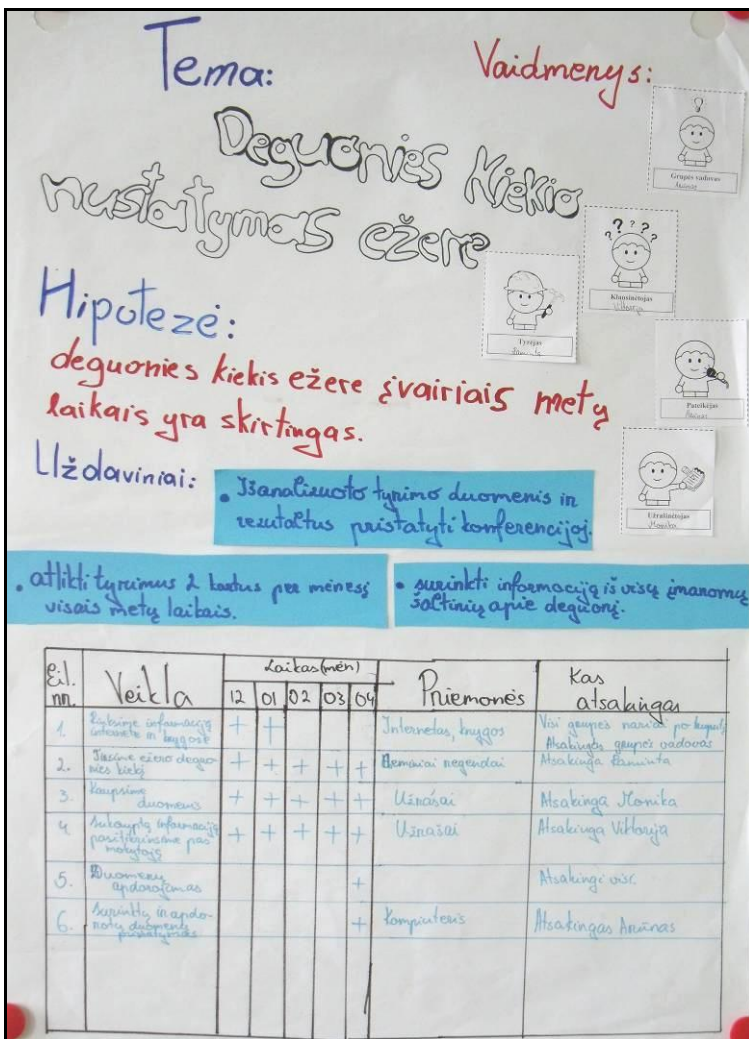 Tema:
Vaidmenys:
Deguonies kiekio
nustatymas ežere
Grupės vadovas
Klausinėtojas
Viktorija
Tyrėjas
Pateikėjas
Užrašinėtojas
Monika
Hipotezė:
deguonies kiekis ežere įvairiais metų
laikais yra skirtingas.
Uždaviniai:
• Išanalizuoto tyrimo duomenis ir
rezultatus pristatyti konferencijoj.
• atlikti tyrimus 2 kartus per mėnesį
visais metų laikais.
• surinkti informaciją iš visų įmanomų
šaltinių apie deguonį.
Eil. nr. Veikla Laikas (mėn) Priemonės Kas atsakingas
12 01 02 03 04
1. informaciją internete ir knygose + + Internetas, knygos Visi grupės nariai po
Atsakingas grupės vadovas
2. Tirsime ežero deguonies kiekį + + + + + Atsakinga
3. Kaupsime duomenis + + + + + Užrašai Atsakinga Monika
4. Sukauptą informaciją pasitikrinsime pas mokytoją + + + + + Užrašai Atsakinga Viktorija
5. Duomenų apdorojimas + Atsakingi visi.
6. Surinktų ir apdorotų duomenų pristatymas + Kompiuteris Atsakingas Arūnas